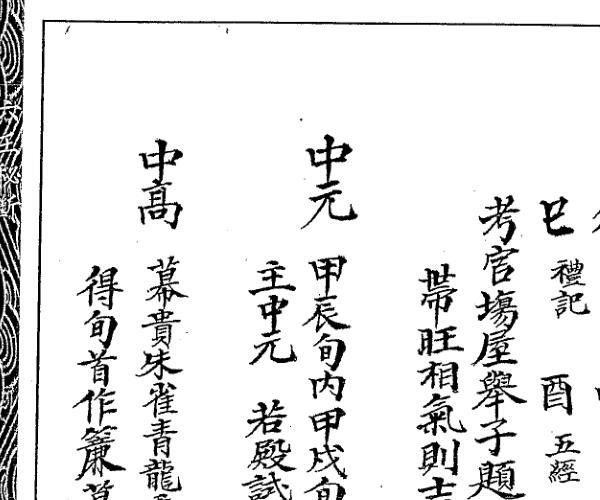 巳 禮記 酉 五經
考官場屋舉子題
帶旺相氣則
中元 甲辰旬內甲戌旬
主中元 若殿試
中高 幕貴朱雀青龍
得旬首作簾幕
六壬秘斷